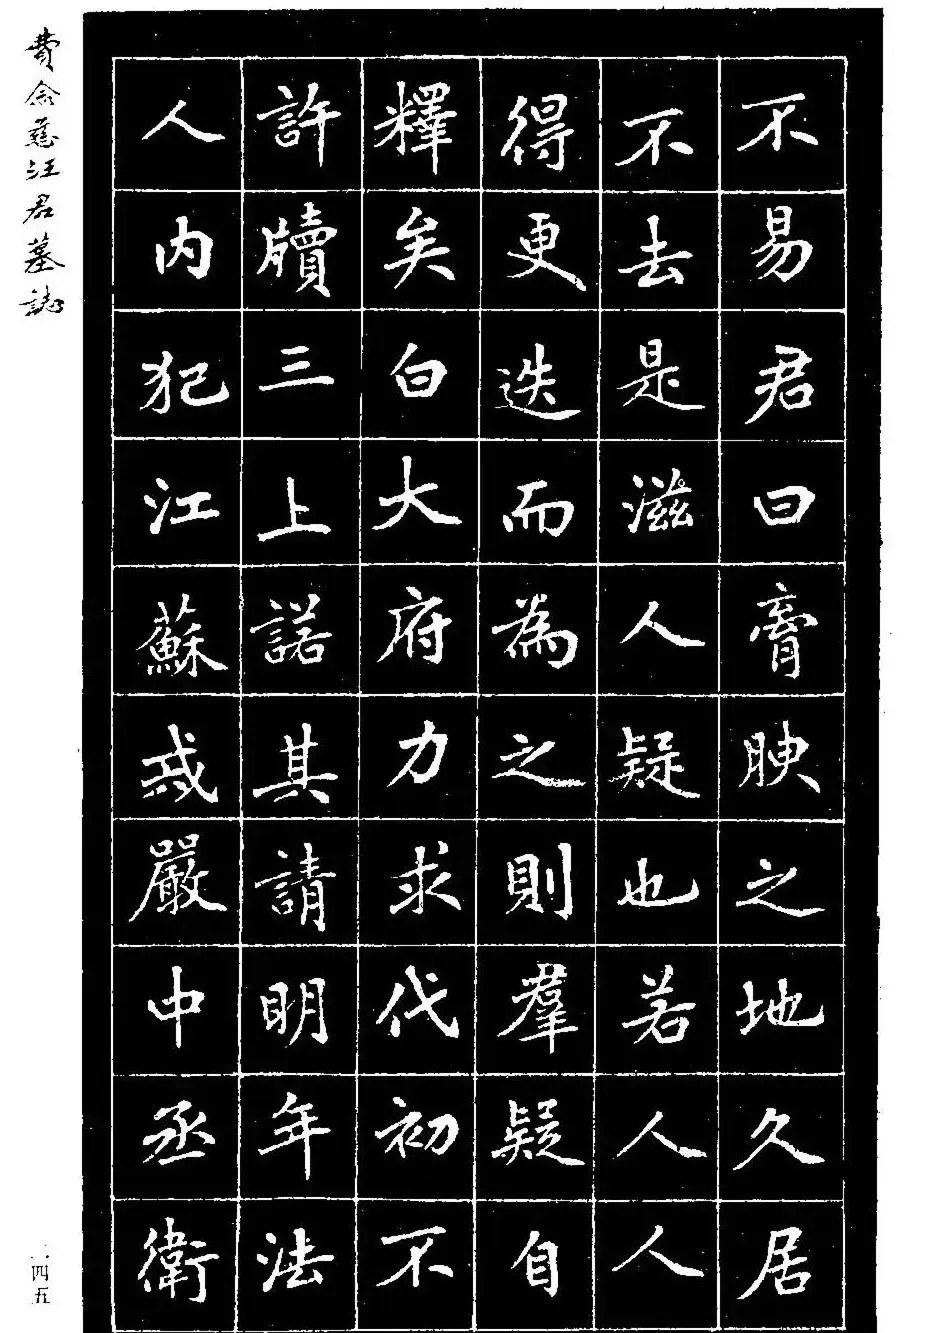 不易君曰膏腴之地久居
不去是滋人疑也若人人
得更迭而為之則羣疑自
釋矣白大府力求代初不
許牘三上諾其請明年法
人內犯江蘇戒嚴中丞衛
費念慈汪君墓誌
一四五